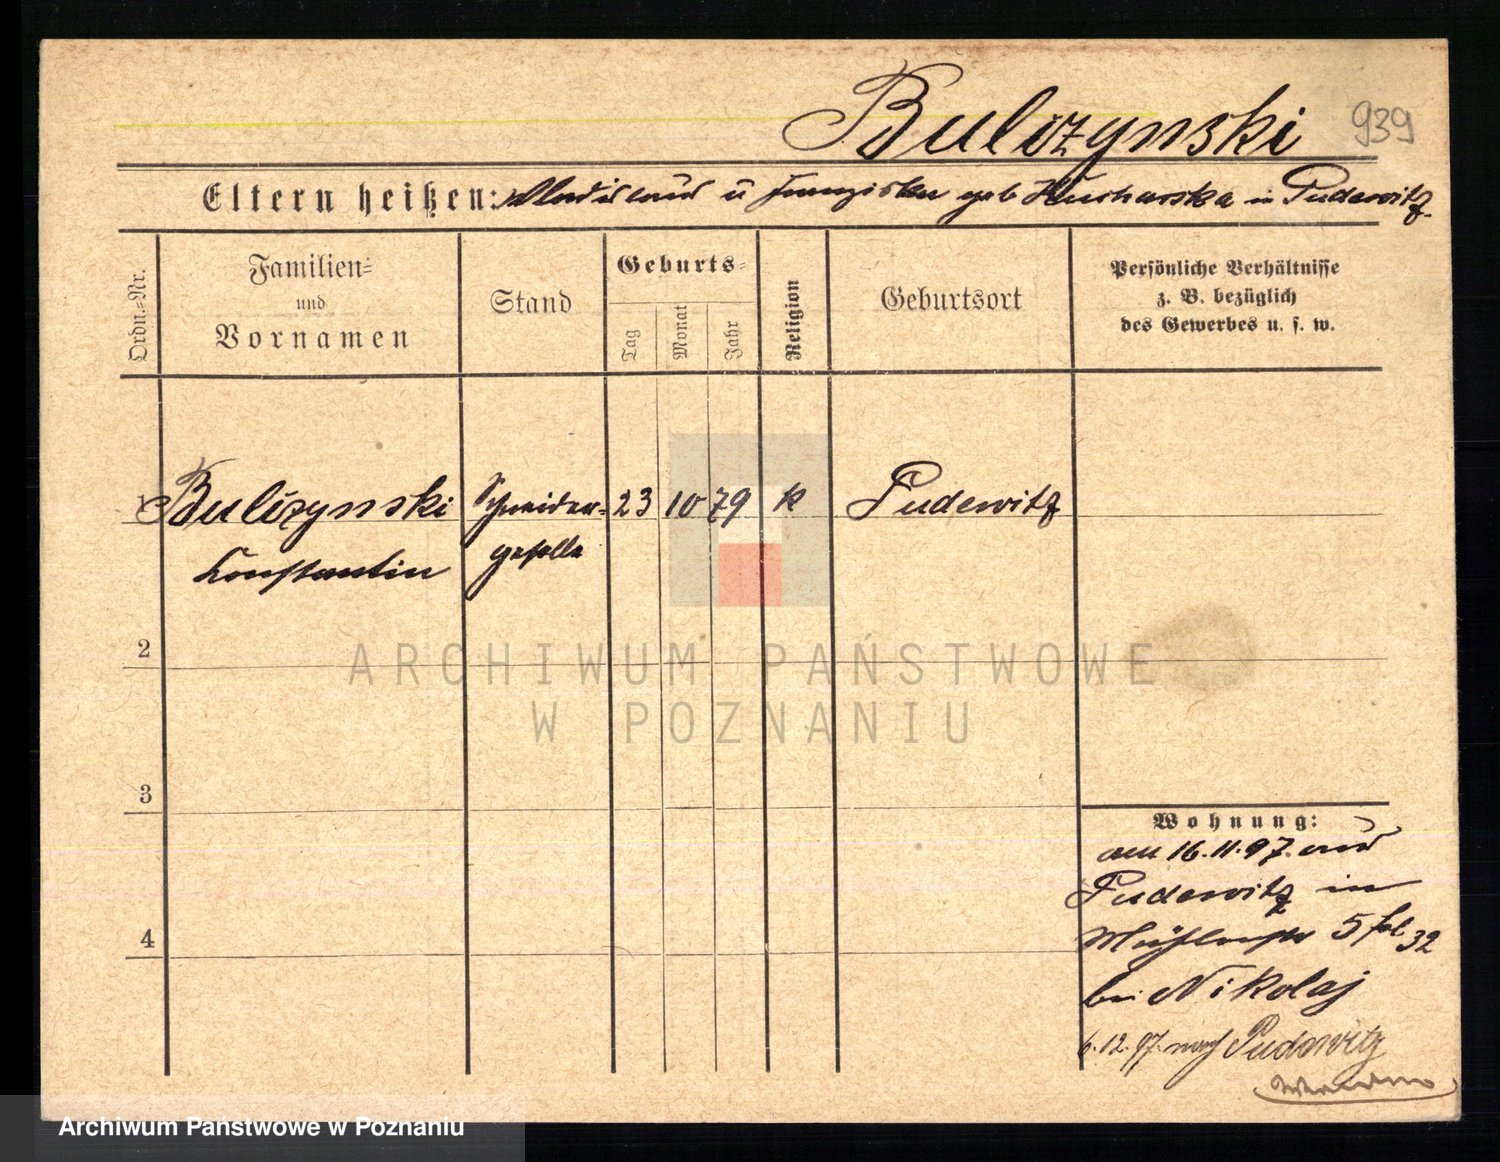 Bulczynski 939
Eltern heißen: Wladislaus u Franziska geb Kucharska in Pudewitz
Ordn.-Nr.
Familien-
und
Vornamen
Stand
Geburts-
Tag
Monat
Jahr
Religion
Geburtsort
Persönliche Verhältnisse
z. B. bezüglich
des Gewerbes u. s. w.
1 Bulczynski Schneider- 23 10 79 k Pudewitz
Konstantin geselle
2
ARCHIWUM PAŃSTWOWE
W POZNANIU
3
4
Wohnung:
am 16.11.97. aus
Pudewitz in
Mühlenstr 5 fol 32
bei Nikolaj
6.12.97. nach Pudewitz
Archiwum Państwowe w Poznaniu